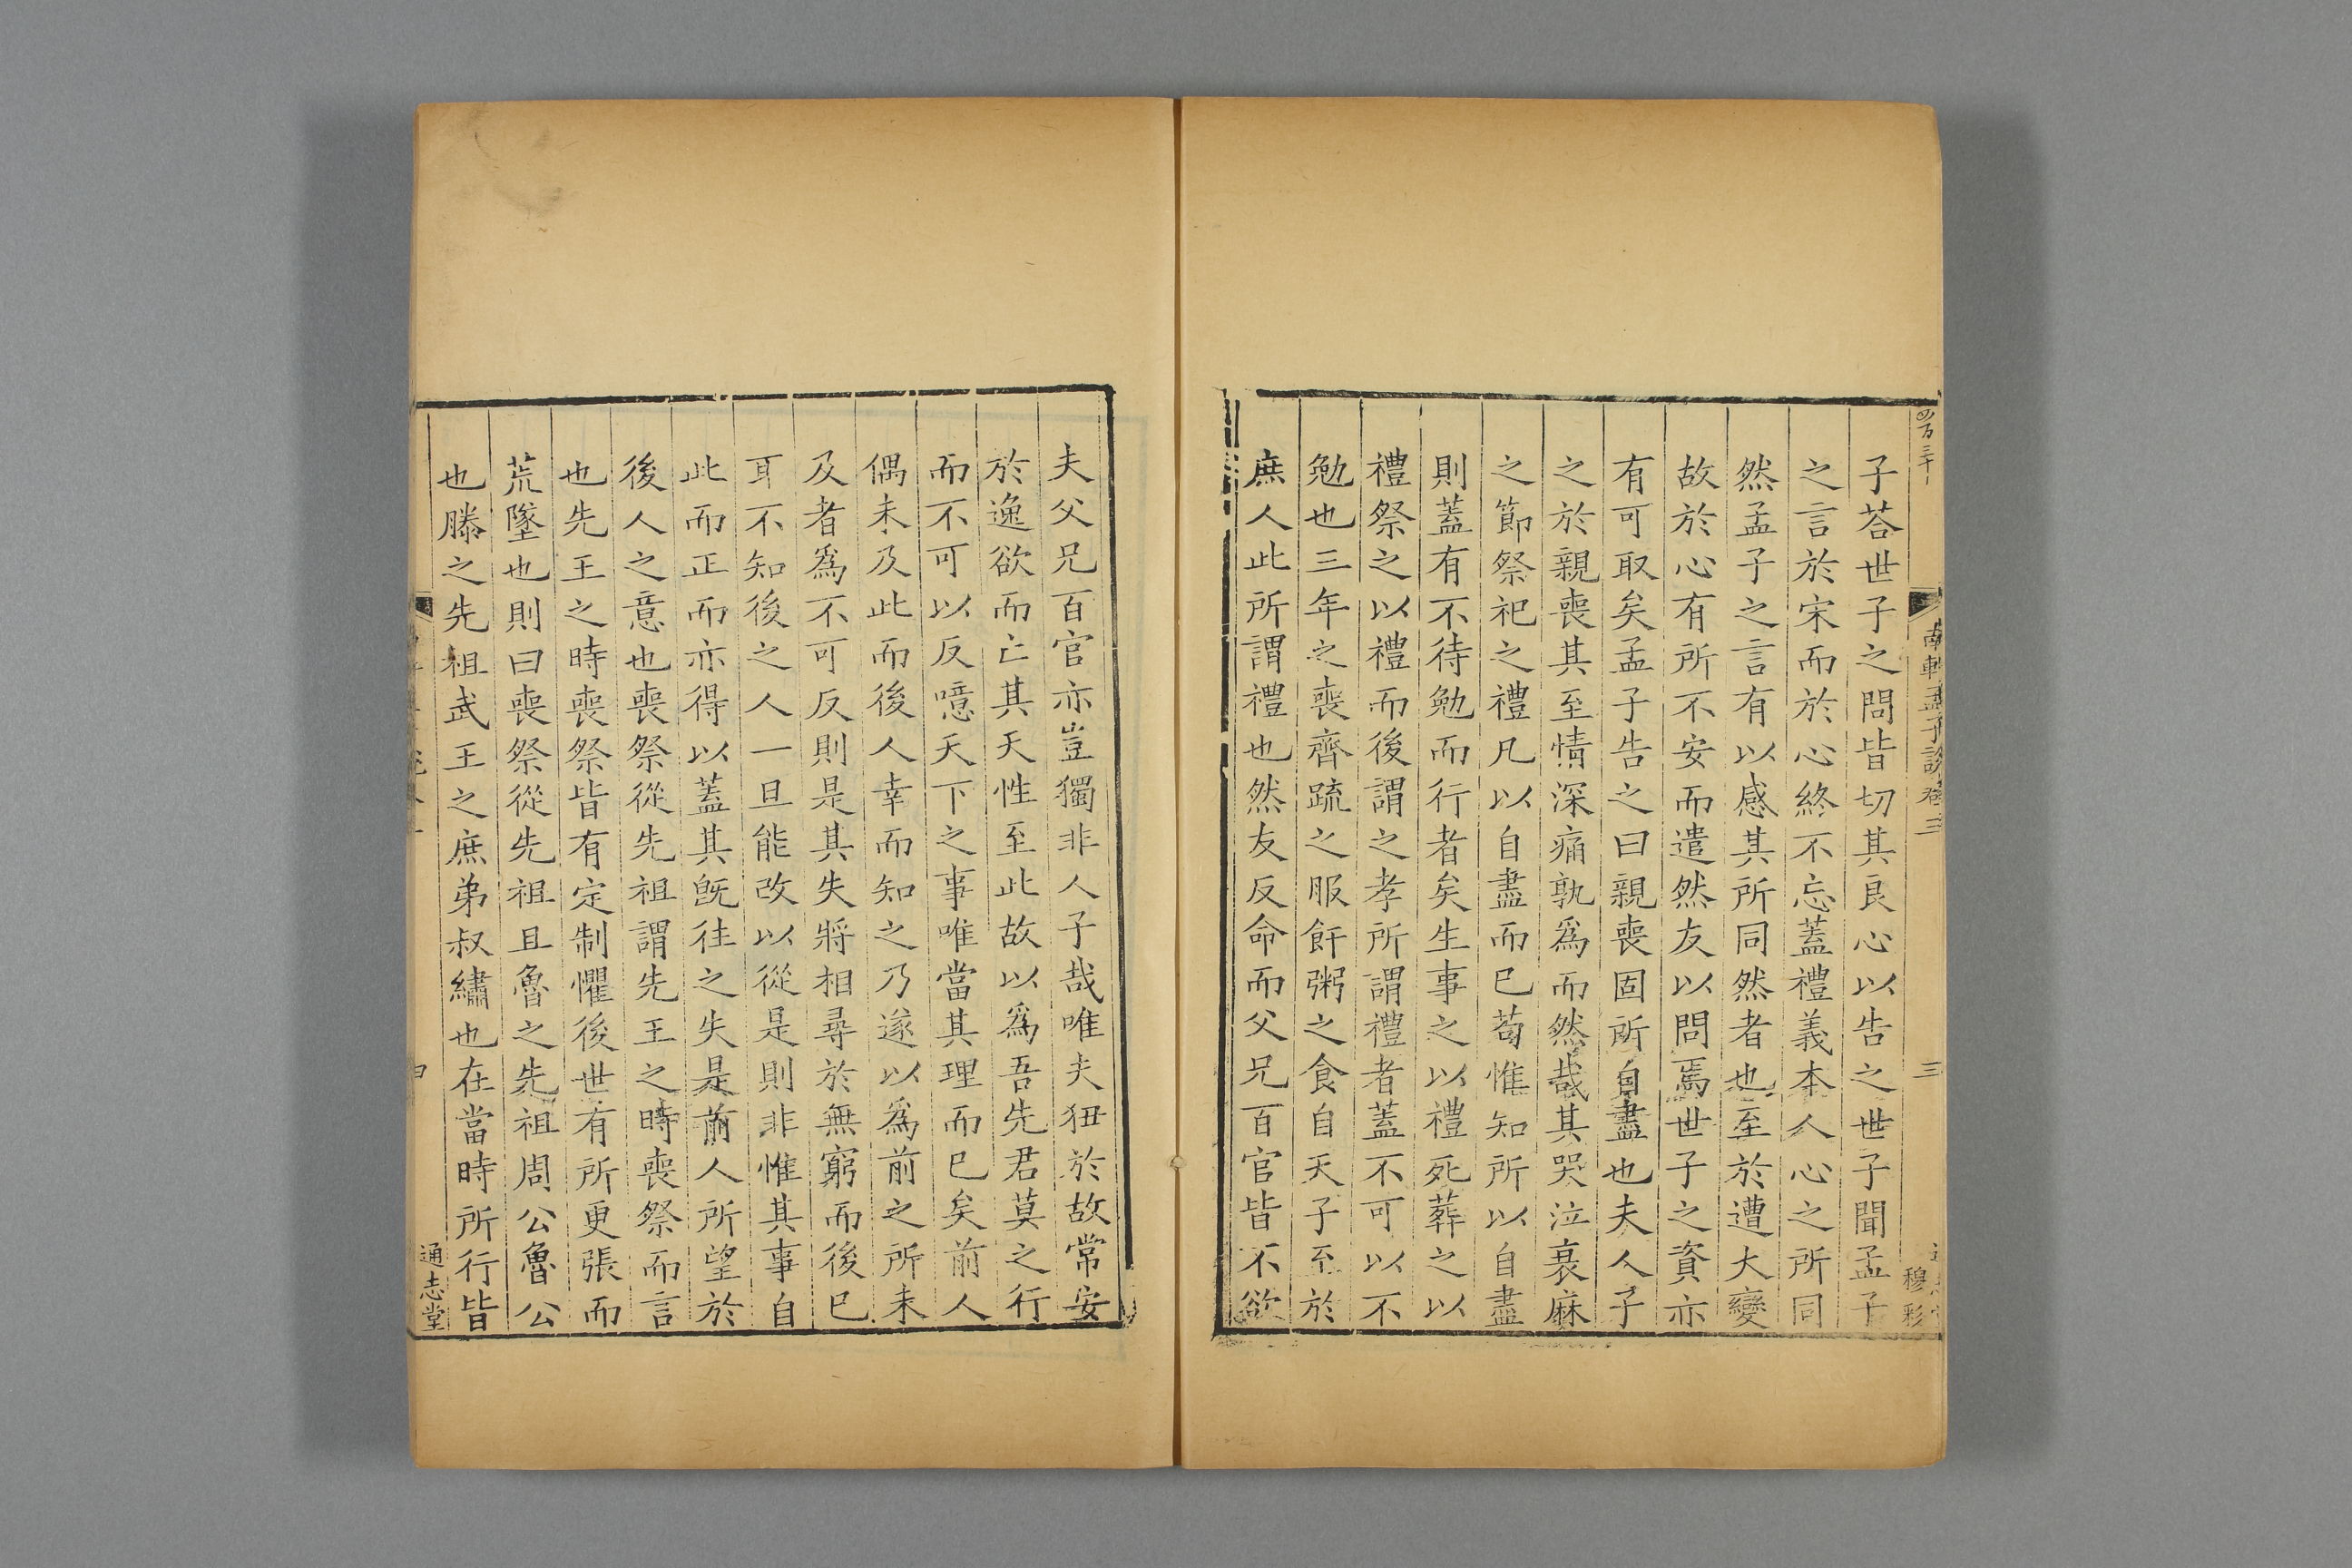 子荅世子之問皆切其良心以告之世子聞孟子
之言於宋而於心終不忘蓋禮義本人心之所同
然孟子之言有以感其所同然者也至於遭大變
故於心有所不安而遣然友以問焉世子之資亦
有可取矣孟子告之曰親喪固所自盡也夫人子
之於親喪其至情深痛孰爲而然哉其哭泣衰麻
之節祭祀之禮凡以自盡而已苟惟知所以自盡
則蓋有不待勉而行者矣生事之以禮死葬之以
禮祭之以禮而後謂之孝所謂禮者蓋不可以不
勉也三年之喪齊疏之服飦粥之食自天子至於
庶人此所謂禮也然友反命而父兄百官皆不欲
南軒孟子說卷三
三
穆彩
夫父兄百官亦豈獨非人子哉唯夫狃於故常安
於逸欲而亡其天性至此故以爲吾先君莫之行
而不可以反噫天下之事唯當其理而已矣前人
偶未及此而後人幸而知之乃遂以爲前之所未
及者爲不可反則是其失將相尋於無窮而後已
耳不知後之人一旦能改以從是則非惟其事自
此而正而亦得以蓋其旣徃之失是前人所望於
後人之意也喪祭從先祖謂先王之時喪祭而言
也先王之時喪祭皆有定制懼後世有所更張而
荒墜也則曰喪祭從先祖且魯之先祖周公魯公
也滕之先祖武王之庶弟叔繡也在當時所行皆
通志堂